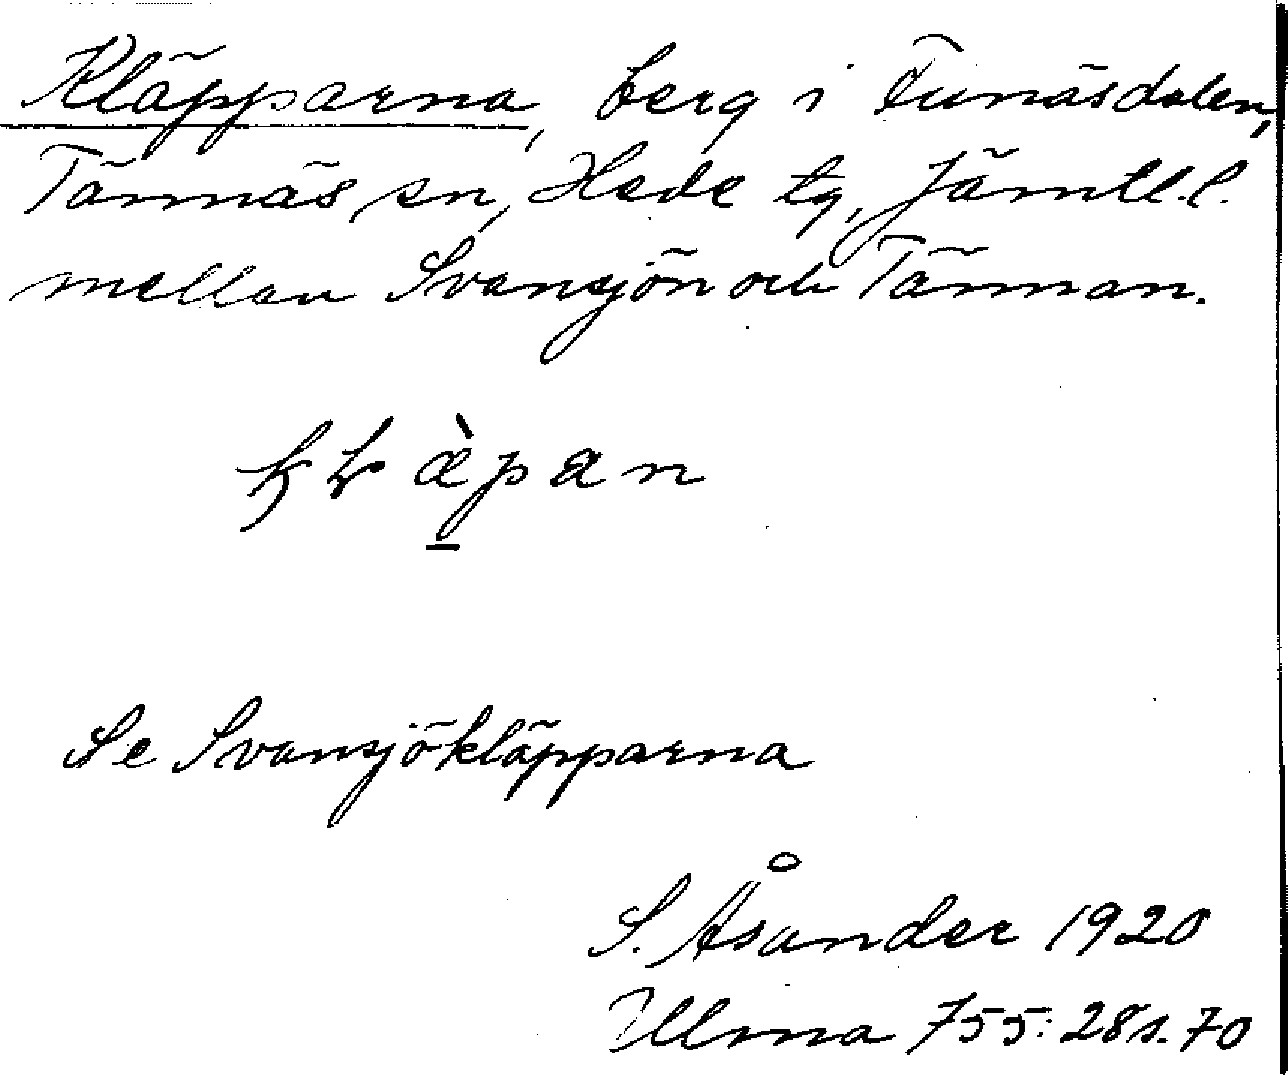 Kläpparna, berg i Funäsdalen,
Tännäs sn, Hede tg, Jämtl.l.
mellan Svansjön och Tännan.
Se Svansjökläpparna
S. Åsander 1920
Ulma 755:28 s. 70